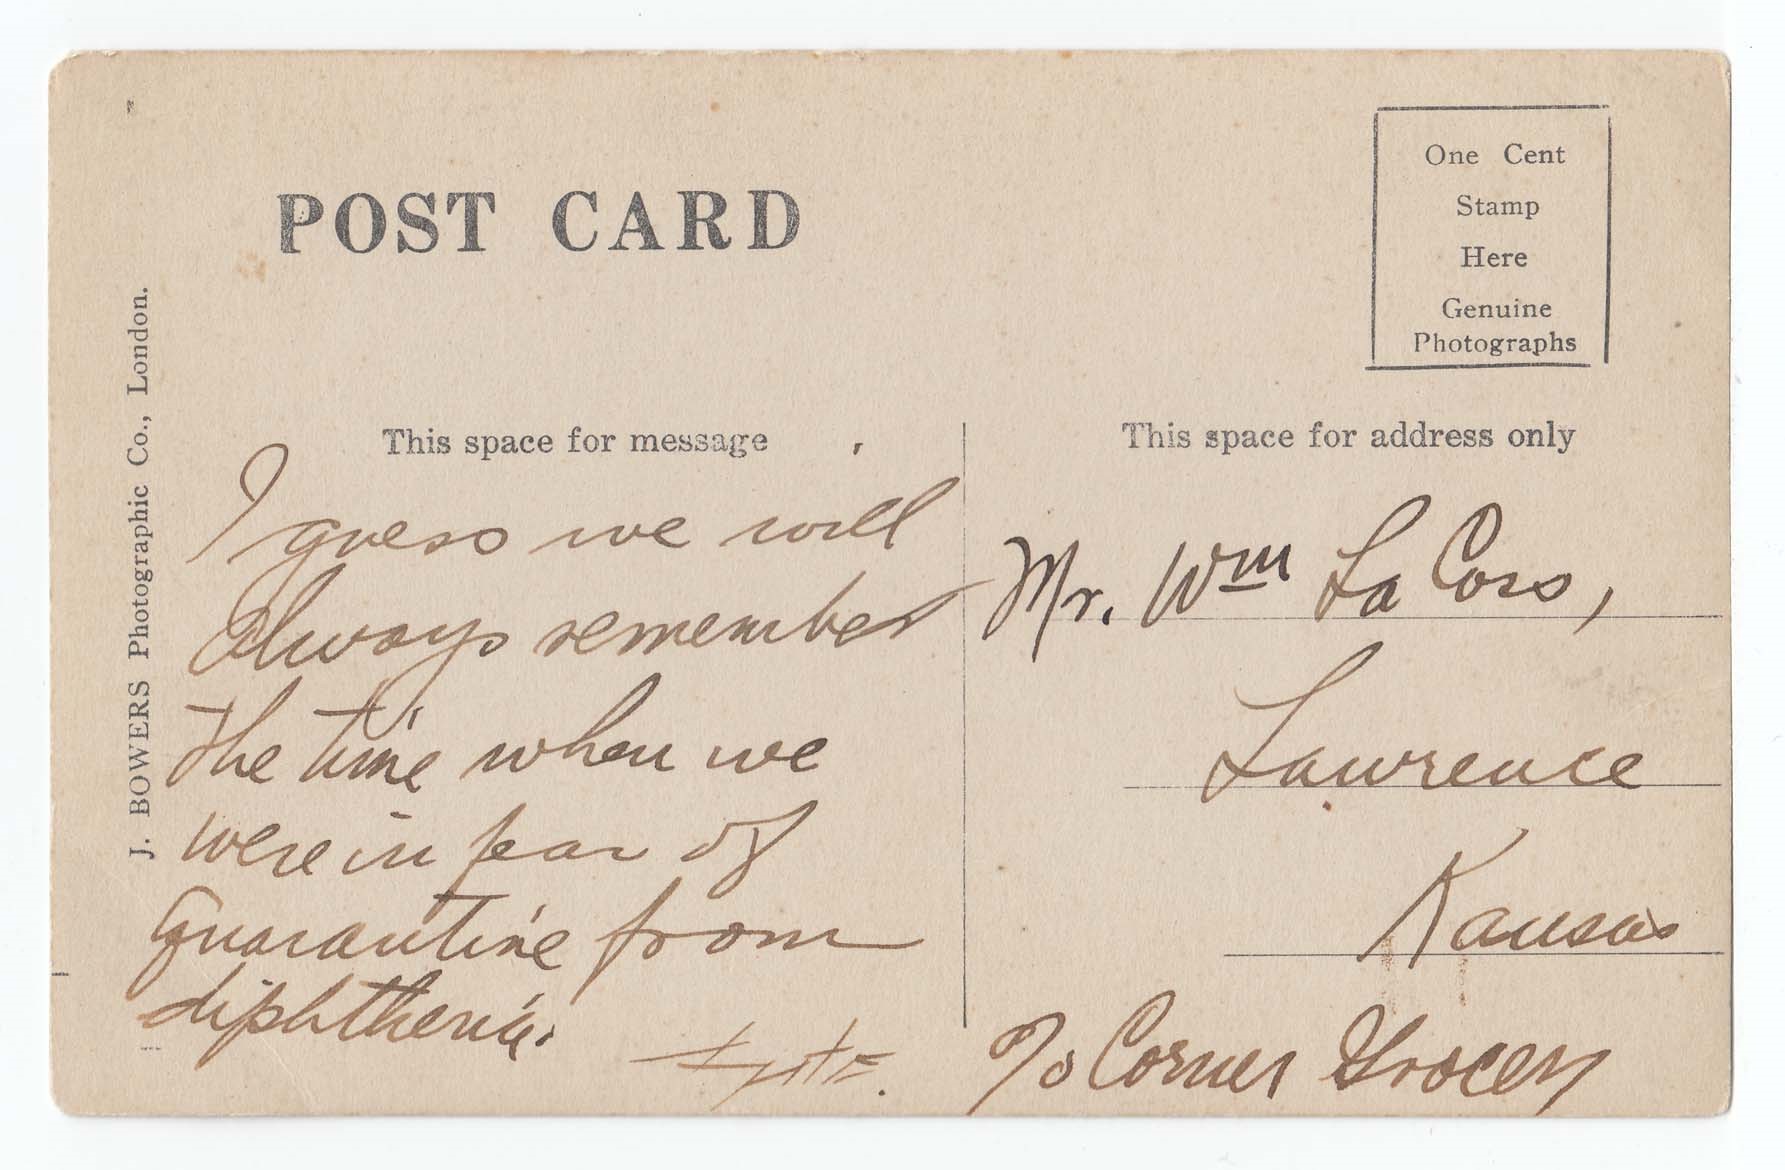 POST CARD
One Cent
Stamp
Here
Genuine
Photographs
J. BOWERS Photographic Co., London.
This space for message
I guess we will
always remember
the time when we
were in fear of
quarantine from
diphtheria.
This space for address only
Mr. Wm La Coss,
Lawrence
Kansas
℅ Corner Grocery